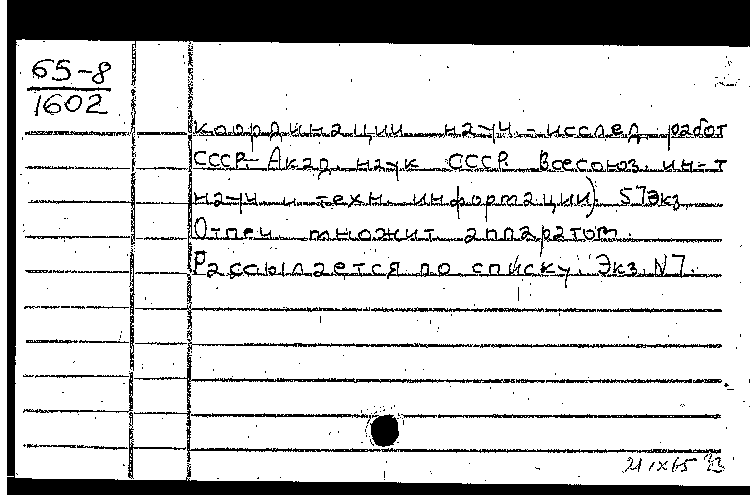 65-8
1602
координации науч.-исслед. работ
СССР. Акад. наук СССР. Всесоюз. ин-т
науч. и техн. информации). 57экз.
Отпеч. множит. аппаратом.
Рассылается по списку. Экз. N7.
21 IX 65